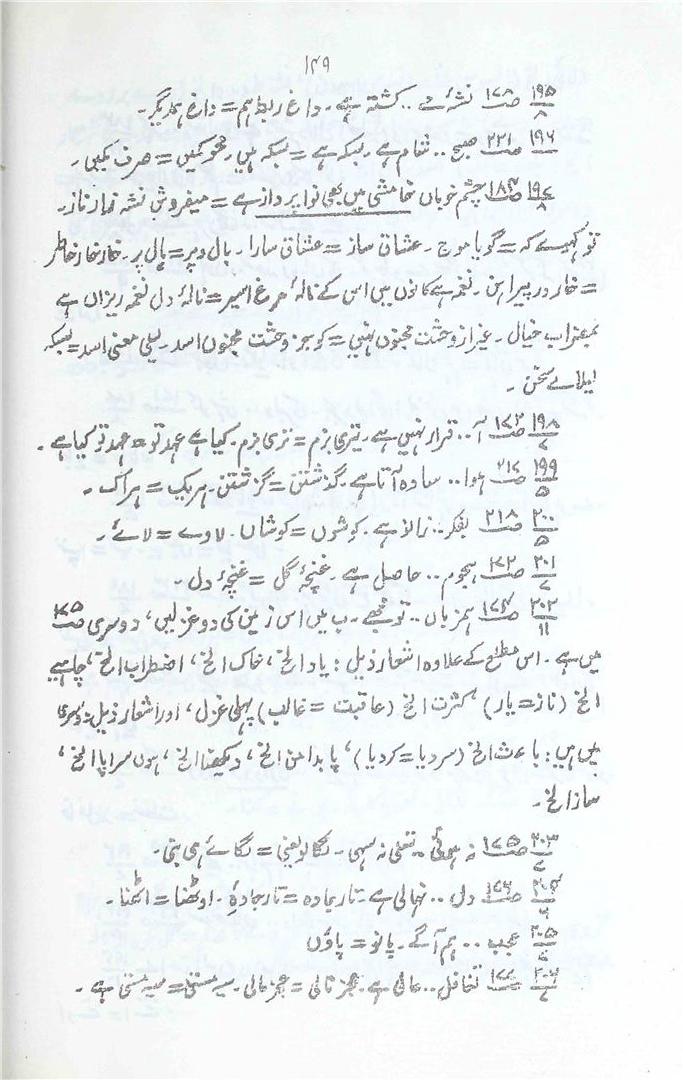 ۱۴۹
۱۹۵/۸ ص۱۷۸ نشۂ مے .. کشتہ ہے۔ داغ ربط ہم = داغ ہمدگر۔
۱۹۶ ص۲۲۱ صبح .. تمام ہے۔ بسکہ ہے = بسکہ ہیں۔ محو کمیں = صرف کمیں۔
ص۱۸۳ چشم خوباں خامشی میں بھی نوا پرداز ہے = میفروش نشہ زار ناز۔
تو کہیے کہ = گویا موج۔ عشاق ساز = عشاق سارا۔ بال و پر = بال پر۔ خار خار خاطر
= خار در پیراہن۔ نغمہ ہے کانوں میں اس کے نالۂ مرغ اسیر = نالۂ دل نغمہ ریزاں ہے
بمضراب خیال۔ غیر از وحشت مجنوں نہیں = کو بجز وحشت مجنوں اسد۔ لیلی معنی اسد = بسکہ
لیلاے سخن۔
۱۹۸/۷ ص۱۷۲ آ .. قرار نہیں ہے۔ تیری بزم = تری بزم۔ کیا ہے عہد تو = عہد تو کیا ہے۔
۱۹۹/۵ ص۲۱۷ ہوا .. سادہ آتا ہے۔ گذشتن = گزشتن۔ ہریک = ہر اک۔
۲۰۰/۵ ص۲۱۸ بفکر .. نزالا ہے۔ کوشوں = کوشاں۔ لاوے = لائے۔
۲۰۱/۷ ہجوم .. حاصل ہے۔ غنچۂ گل = غنچۂ دل۔
۲۰۲/۱۱ ص۱۷۴ ہم زباں .. تو مجھے۔ ب میں اس زمین کی دو غزلیں، دوسری ص۷۵
میں ہے۔ اس مطلع کے علاوہ اشعار ذیل: یاد الخ، خاک الخ، اضطراب الخ، چاہیے
الخ (ناز = یار) کثرت الخ (عاقبت = غالب) پہلی غزل، اور اشعار ذیل دوسری
میں ہیں: باعث الخ (سر دیا = کر دیا)، پا بدامن الخ، دیکھنا الخ، ہوں سراپا الخ،
ساز الخ۔
۲۰۳/۷ ص۱۷۵ نہ ہوئی .. تسلی نہ سہی۔
دل .. نہالی ہے۔ تار جادہ = تار جادۂ۔ اوٹھنا = اٹھنا۔
۲۰۵ عجب .. ہم آگے۔ پانو = پاؤں
ص۱۷۷ تغافل .. عالی ہے۔ عجز عالی۔ سیہ مستی ہے۔